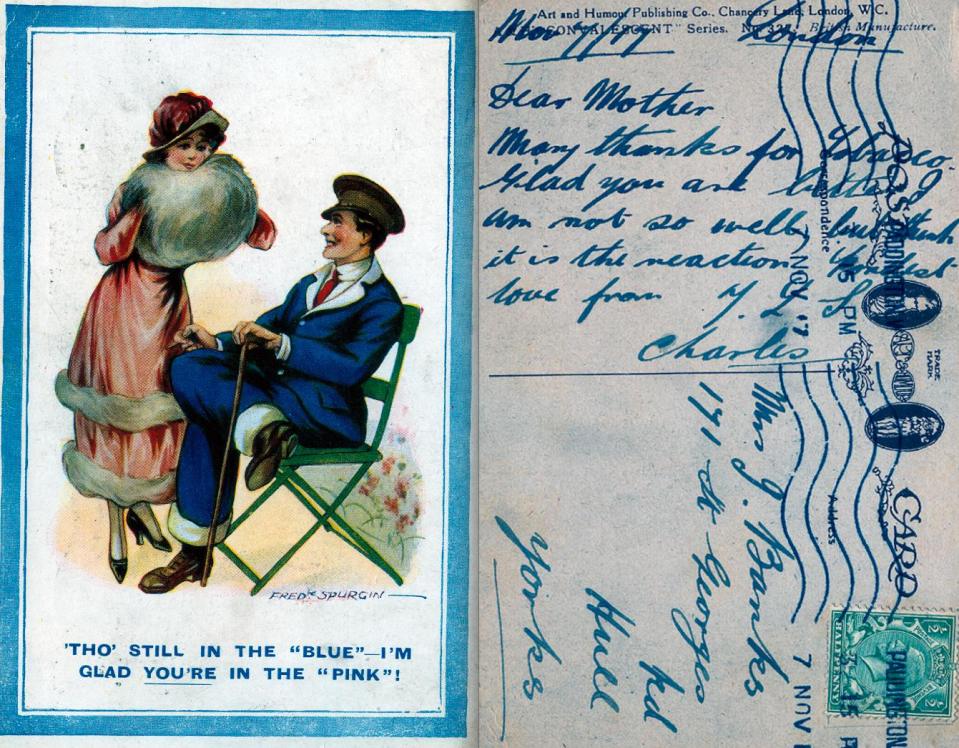 FREDK SPURGIN
'THO' STILL IN THE "BLUE"—I'M
GLAD YOU'RE IN THE "PINK"!
Art and Humour Publishing Co., Chancery Lane, London, W.C.
"CONVALESCENT" Series. No. British Manufacture.
Nov 7/17 London
Dear Mother
Many thanks for Tobacco.
Glad you are better. I
am not so well but think
it is the reaction. Fondest
love from
Charles
Mrs J. Banks
171 St Georges Rd
Hull
Yorks
POST CARD
Correspondence
Address
TRADE MARK
PADDINGTON
15 PM
7 NOV 17
HALFPENNY
½ ½
PADDINGTON
15 P
7 NOV